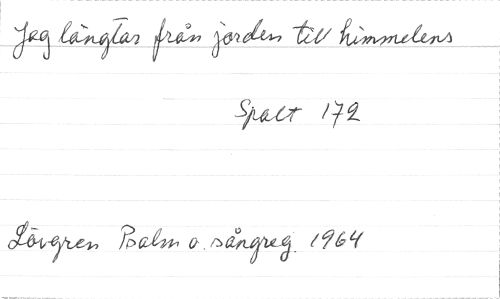 Jag längtar från jorden till himmelens
Spalt 172
Lövgren Psalm o. sångreg. 1964